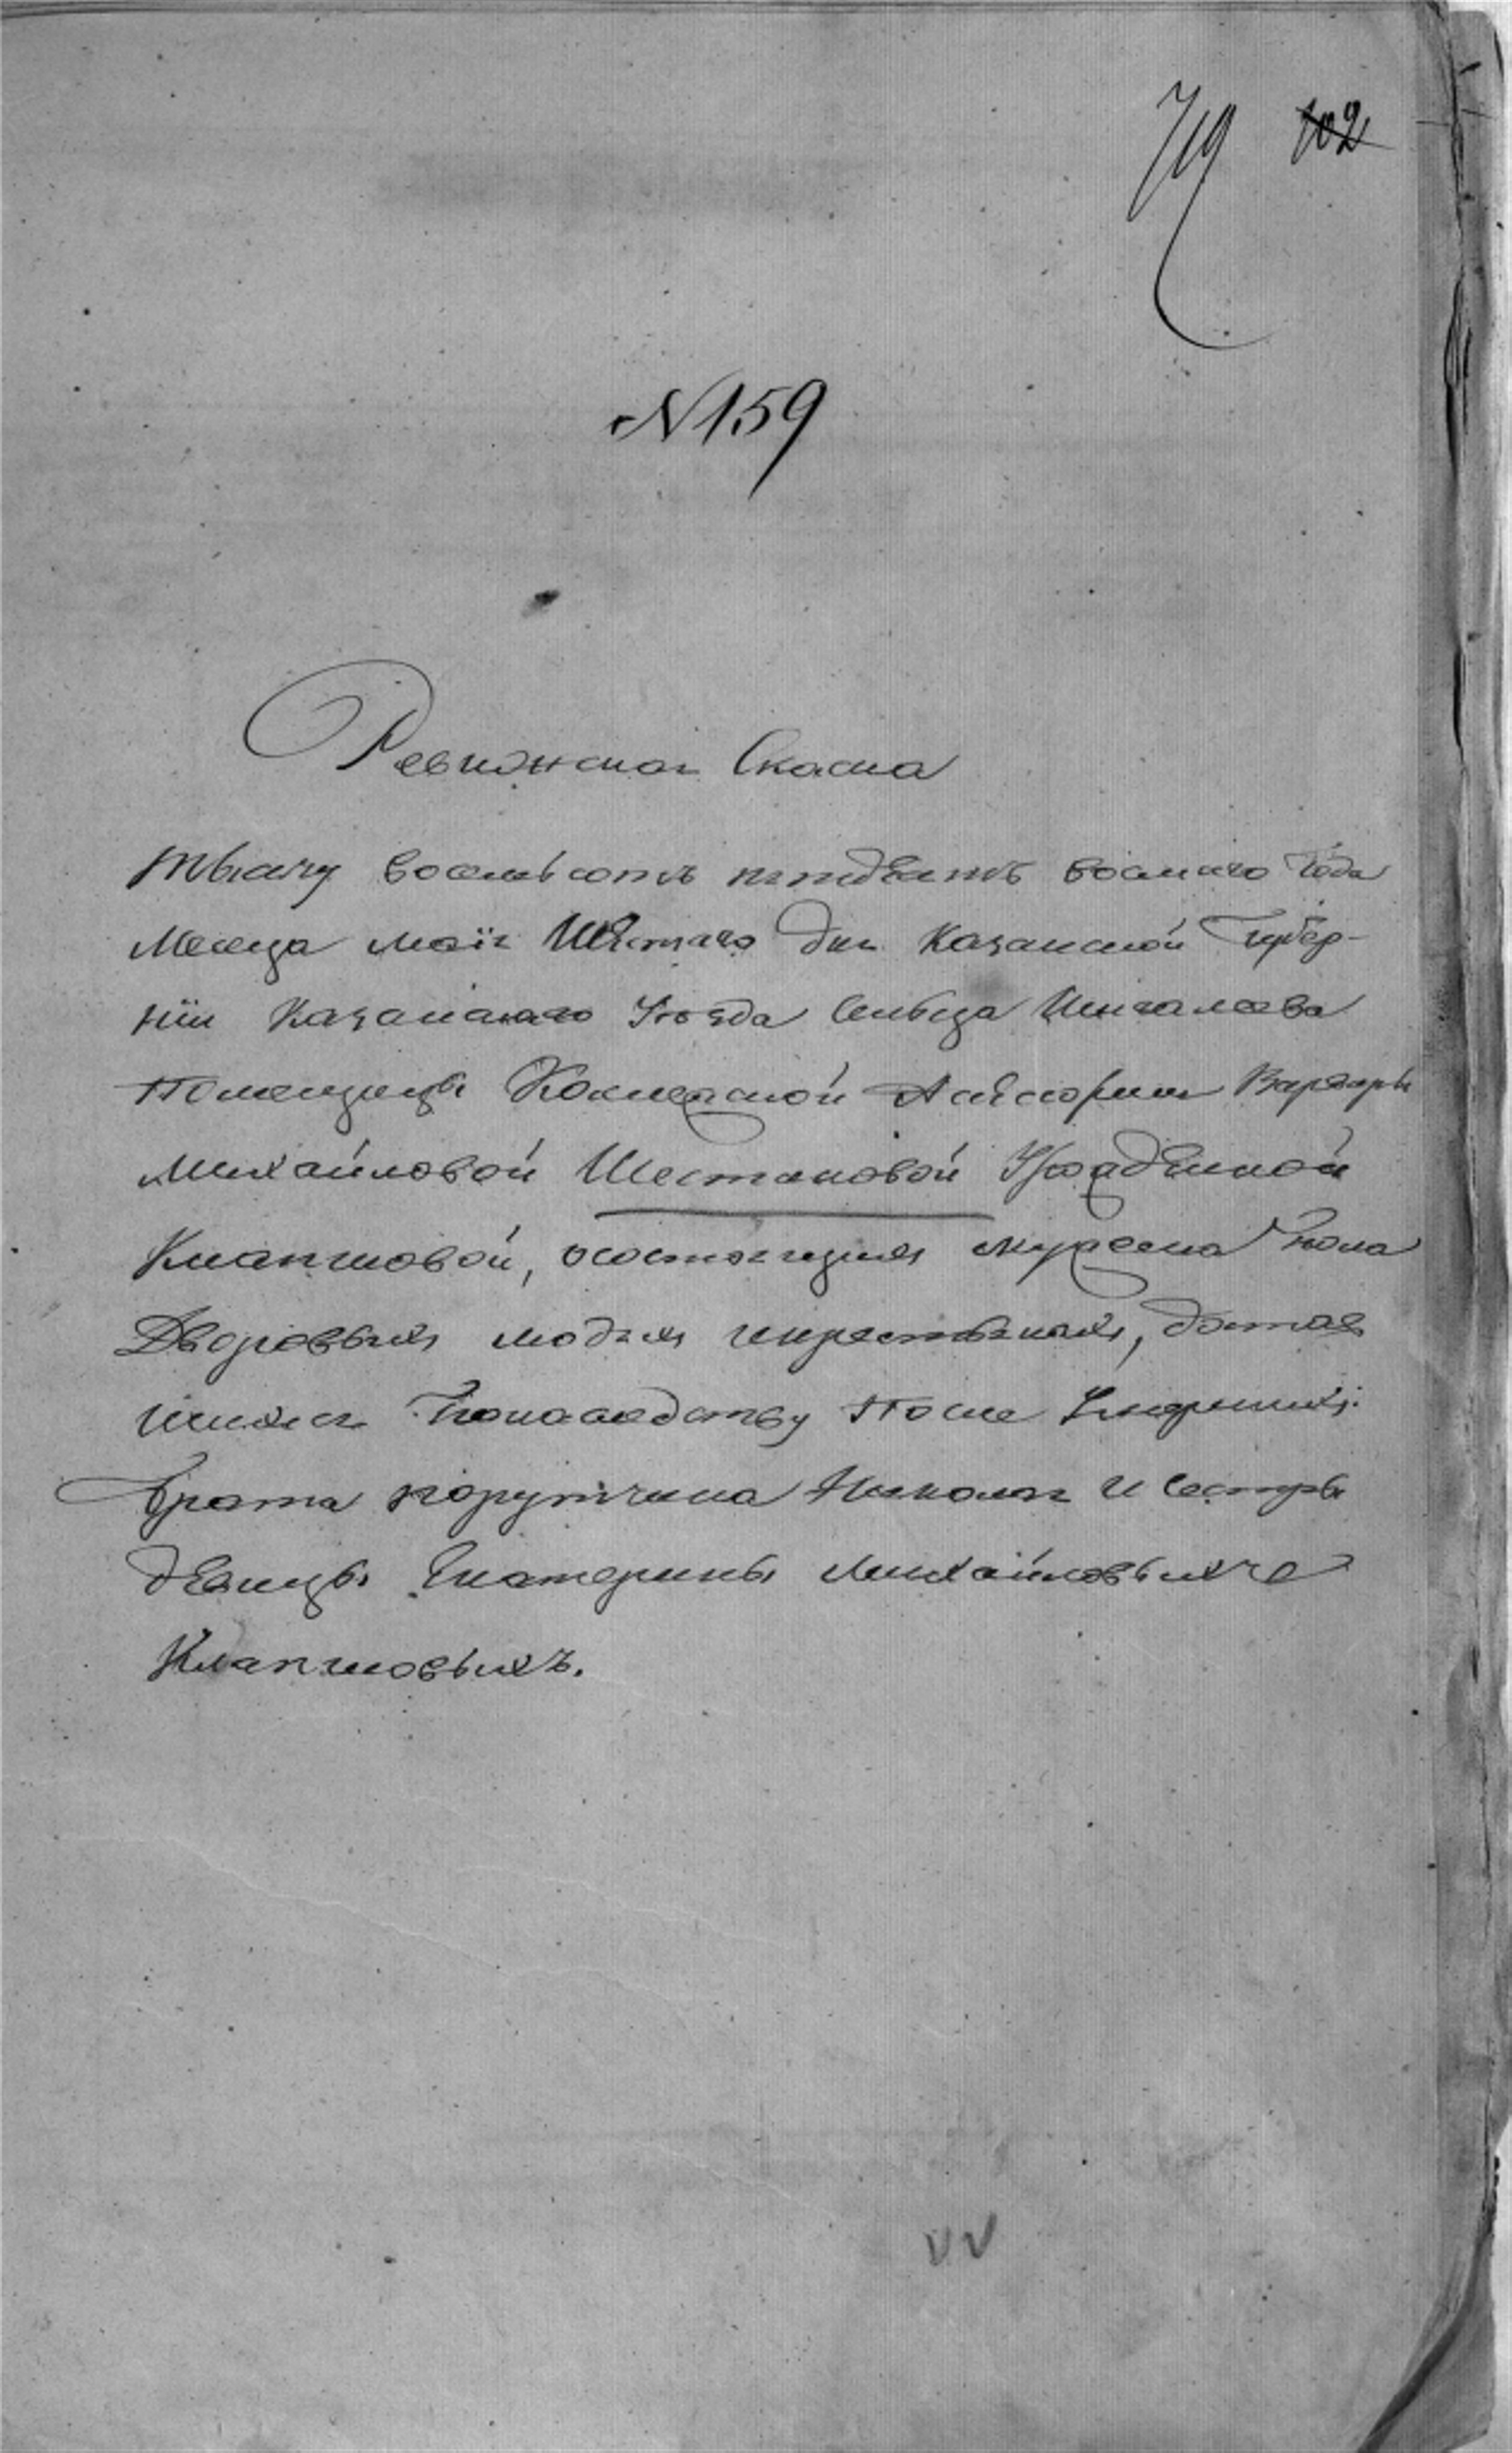 719 102
N 159
Ревизская Сказка
тысячу восемьсотъ пятдесятъ восмаго Года
Месеца маія Шестаго дня Казанской Губер-
ніи Казанскаго Уезда Сельца
Помещицы Колежской Асессорши Варвары
Михайловой Шестаковой Урожденной
Княпшовой, осостоящихъ мужеска пола
Дворовыхъ людяхъ икрестьянахъ, достав
шихся Понаследству После Умершихъ
брата порутчика Николая и Сестры
девицы Екатерины Михайловыхъ